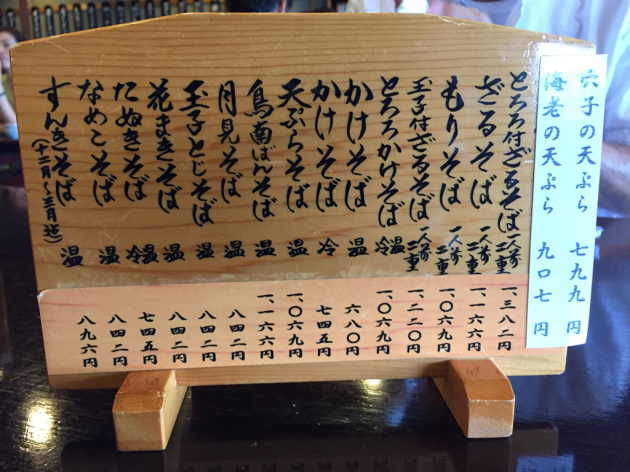 穴子の天ぷら 七九九円
海老の天ぷら 九〇七円
とろろ付ざるそば 一人前 二重 一、三八二円
ざるそば 一人前 二重 一、一六六円
もりそば 一人前 二重 一、〇六九円
玉子付ざるそば 一人前 二重 一、二二〇円
とろろかけそば 温 冷 一、〇六九円
かけそば 温 六八〇円
かけそば 冷 七四五円
天ぷらそば 温 一、〇六九円
鳥南ばんそば 温 一、一六六円
月見そば 温 八四二円
玉子とじそば 温 八四二円
花まきそば 温 八四二円
たぬきそば 温 冷 七四五円
なめこそば 温 八四二円
すんきそば (十二月〜三月迄) 温 八九六円